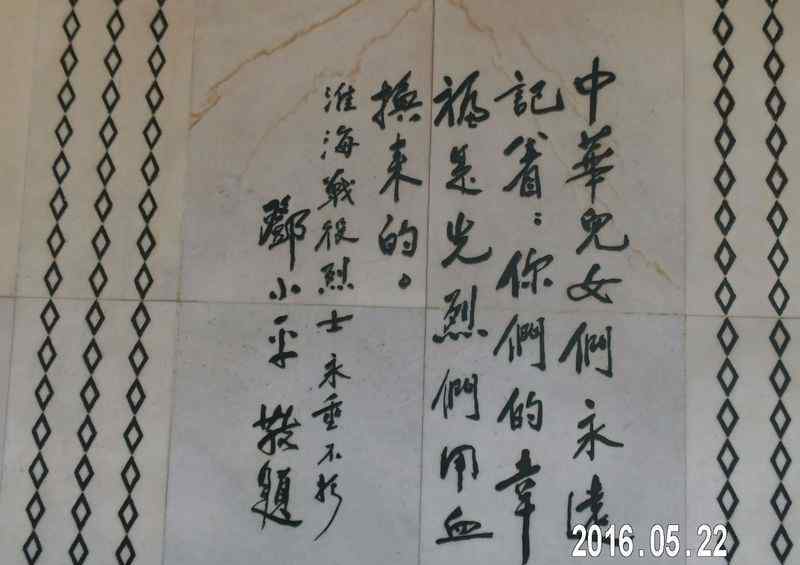 中華兒女們永遠
記着：你們的幸
福是先烈們用血
換来的。
淮海戰役烈士永垂不朽
鄧小平 敬題
2016.05.22